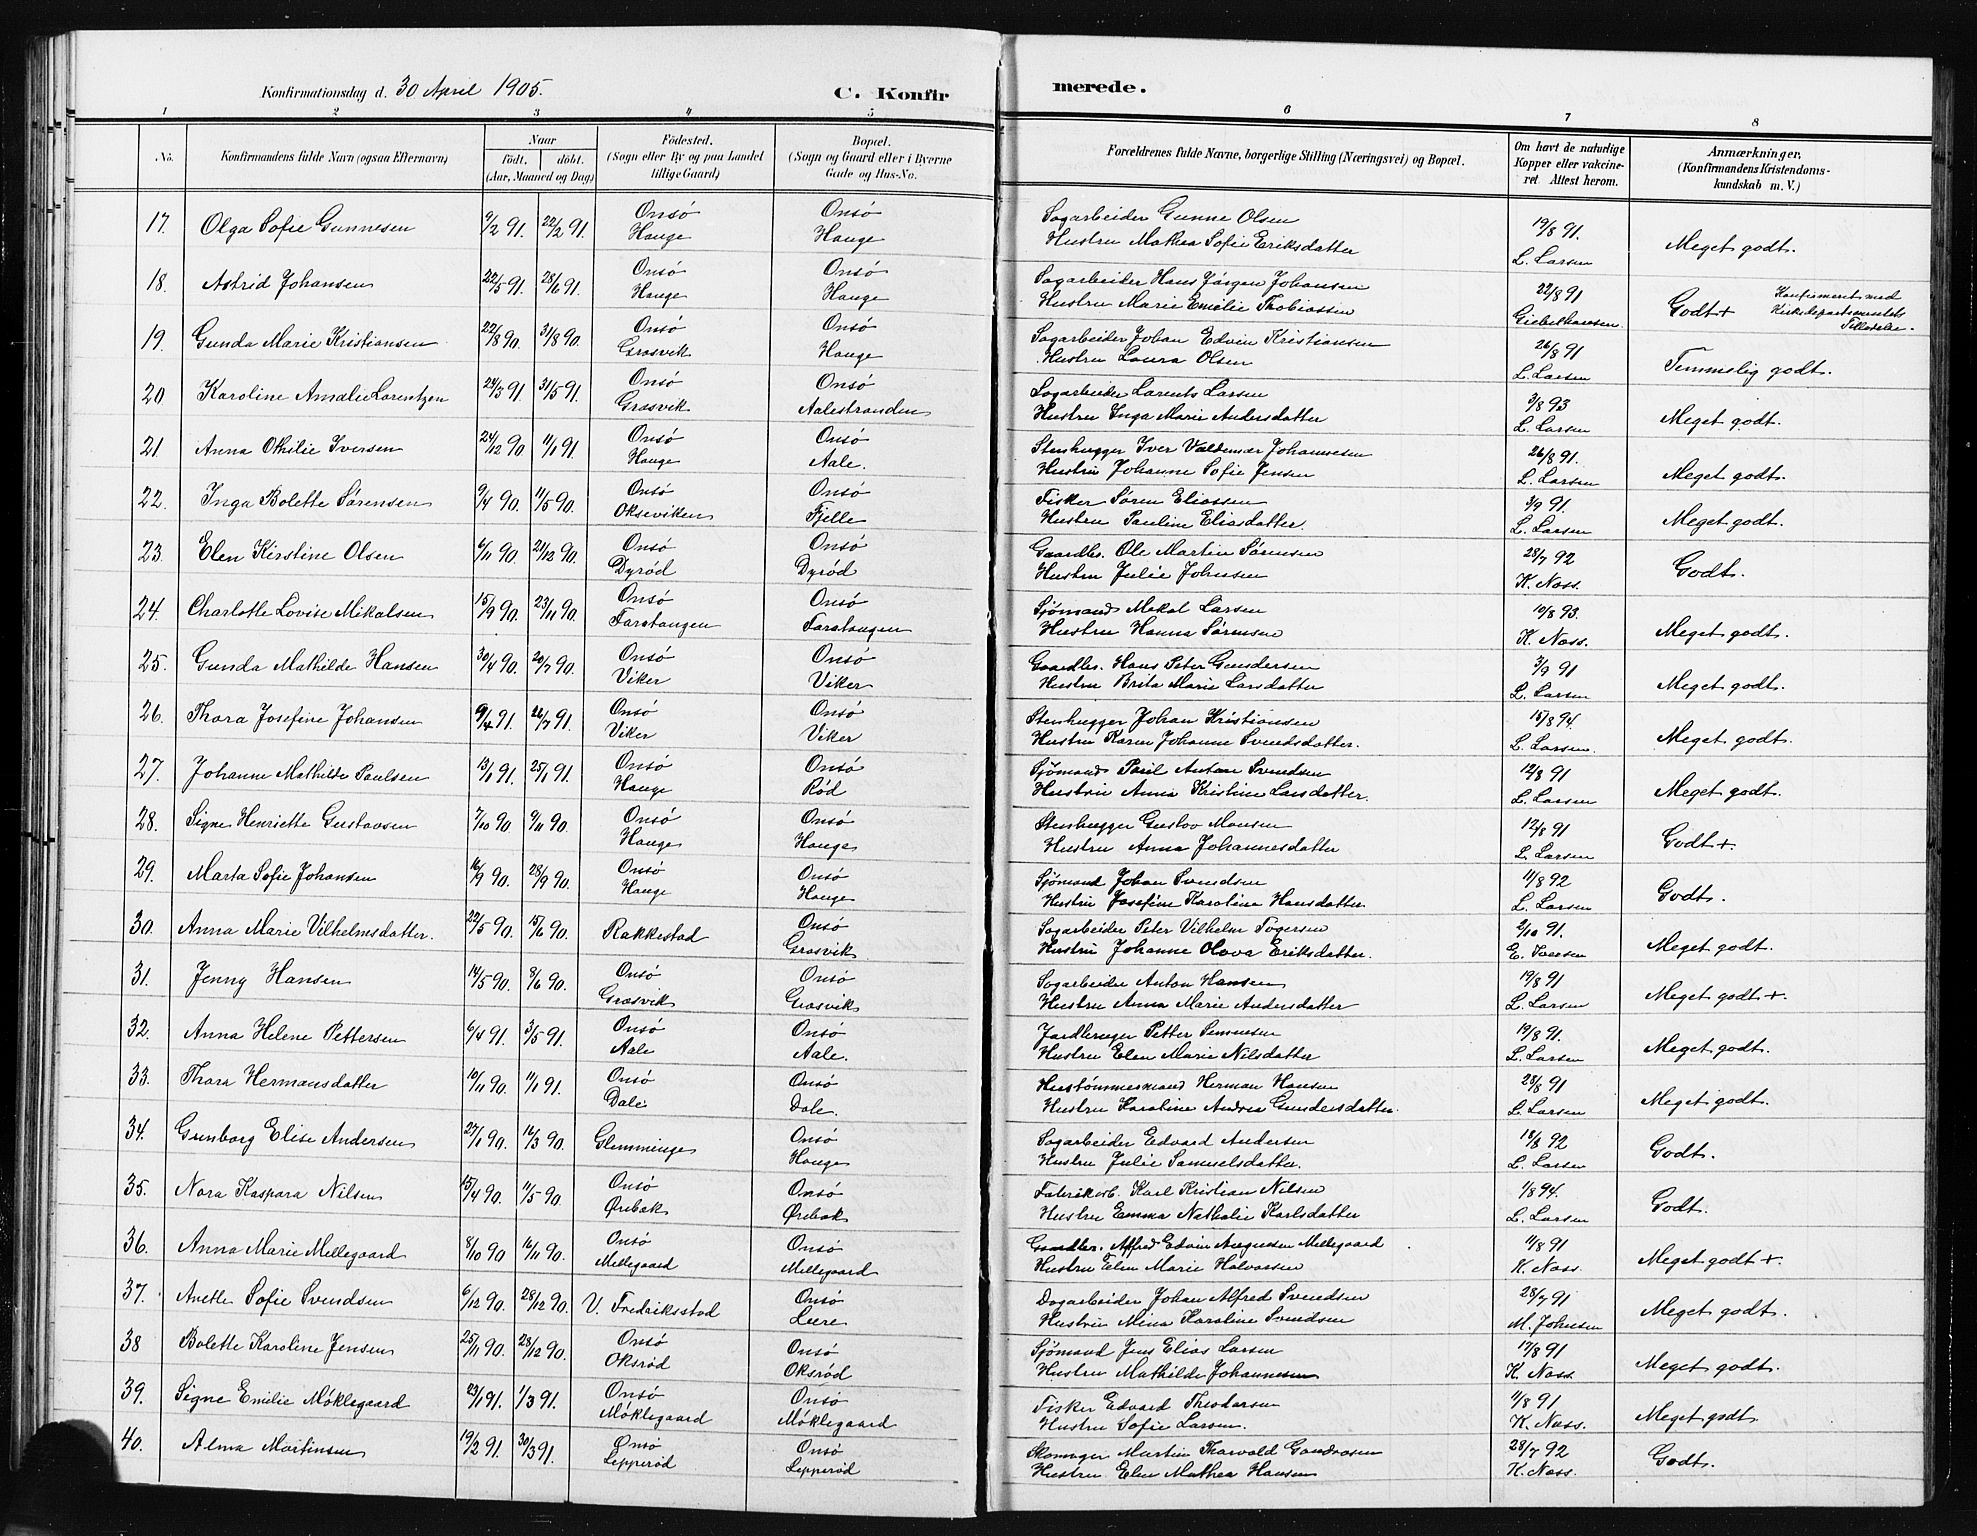 Konfirmationsdag d. 30 April 1905. C. Konfirmerede.
1 2 3 4 5 6 7 8
No. Konfirmandens fulde Navn (ogsaa Efternavn) Naar født. døbt. (Aar, Maaned og Dag) Fødested. (Sogn eller By og paa Landet tillige Gaard) Bopæl. (Sogn og Gaard eller i Byerne Gade og Hus-No. Forældrenes fulde Navne, borgerlige Stilling (Næringsvei) og Bopæl. Om havt de naturlige Kopper eller vakcineret. Attest herom. Anmærkninger. (Konfirmandens Kristendomskundskab m. V.)
17. Olga Sofie Gunnesen 9/2 91. 22/2 91. Onsö Hauge Onsö Hauge Sagarbeider Gunne Olsen 19/8 91.
Hustru Mathea Sofie Eriksdatter L. Larsen Meget godt.
18. Astrid Johansen 22/5 91. 28/6 91. Onsö Hauge Onsö Hauge Sagarbeider Hans Jörgen Johansen 22/8 91
Hustru Marie Emilie Thobiassen Giebelhausen Godt + Konfirmeret med Kirkedepartementets Tilladelse.
19. Gunda Marie Kristiansen 22/8 90. 31/8 90. Onsö Græsvik Onsö Hauge Sagarbeider Johan Edvin Kristiansen 26/8 91
Hustru Laura Olsen L. Larsen Temmelig godt.
20 Karoline Amalie Lorentzen 24/3 91. 31/5 91. Onsö Græsvik Onsö Aalestranden Sagarbeider Lorents Larsen 3/8 93
Hustru Inga Marie Andersdatter L. Larsen Meget godt.
21 Anna Othilie Iversen 24/12 90 11/1 91. Onsö Hauge Onsö Aale. Stenhugger Iver Valdemar Johannesen 26/8 91.
Hustru Johanne Sofie Jensen L. Larsen Meget godt.
22. Inga Bolette Sörensen 9/4 90. 11/5 90. Onsö Okseviken Onsö Fjelle Fisker Sören Eliassen 3/9 91.
Hustru Pauline Eliasdatter. L. Larsen Meget godt.
23. Elen Kirstine Olsen 6/11 90. 21/12 90. Onsö Dyröd Onsö Dyröd Gaardbr. Ole Martin Sörensen 28/7 92
Hustru Julie Johnsen K. Nass. Godt.
24. Charlotte Lovise Mikalsen 15/9 90. 23/11 90. Onsö Faratangen Onsö Faratangen Sjömand Mikal Larsen 10/8 93.
Hustru Hanna Sörensen K. Nass. Meget godt.
25. Gunda Mathilde Hansen 30/4 90. 20/7 90. Onsö Viker Onsö Viker Gaardbr. Hans Peter Gundersen 3/9 91
Hustru Brita Marie Larsdatter L. Larsen Meget godt.
26. Thora Josefine Johansen 9/4 91. 26/7 91. Onsö Viker Onsö Viker Stenhugger Johan Kristiansen 15/8 94.
Hustru Karen Johanne Svendsdatter. L. Larsen. Meget godt.
27. Johanne Mathilde Paulsen 13/1 91. 25/1 91. Onsö Hauge Onsö Röd Sjömand Paul Anton Svendsen 12/8 91
Hustru Anna Kristine Larsdatter. L. Larsen Meget godt.
28. Signe Henriette Gustavsen 7/10 90 9/11 90. Onsö Hauge Onsö Hauge Stenhugger Gustav Monsen 12/8 91
Hustru Anna Johannesdatter L. Larsen Godt +.
29. Marta Sofie Johansen 16/9 90. 28/9 90. Onsö Hauge Onsö Hauge Sjömand Johan Svendsen 11/8 92
Hustru Josefine Karoline Hansdatter. L. Larsen Godt.
30. Anna Marie Vilhelmsdatter. 22/5 90. 15/6 90. Rakkestad Onsö Græsvik Sagarbeider Peter Vilhelm Togersen 9/10 91.
Hustru Johanne Olava Eriksdatter. E. Iversen Meget godt.
31. Jenny Hansen 14/5 90. 8/6 90. Onsö Græsvik Onsö Græsvik Sagarbeider Anton Hansen 19/8 91
Hustru Anna Marie Andersdatter L. Larsen Meget godt +.
32. Anna Helene Pettersen 6/4 91. 3/5 91. Onsö Aale Onsö Aale. Jordbruger Petter Simensen 19/8 91.
Hustru Elen Marie Nilsdatter L. Larsen Meget godt.
33. Thora Hermansdatter 10/11 90. 11/1 91. Onsö Dale Onsö Dale. Hustömmermand Herman Hansen 28/8 91
Hustru Karoline Andrea Gundersdatter. L. Larsen Meget godt.
34. Gunborg Elise Andersen 27/1 90. 16/3 90. Glemminge Onsö Hauge Sagarbeider Edvard Andersen 18/8 92
Hustru Julie Samuelsdatter. L. Larsen Godt.
35. Nora Kaspara Nilsen 15/4 90. 11/5 90. Onsö Örebæk Onsö Örebæk Fabrikarb. Karl Kristian Nilsen 1/8 94.
Hustru Emma Nathalie Karlsdatter L. Larsen Godt.
36. Anna Marie Mellegaard 8/10 90 16/11 90. Onsö Mellegaard Onsö Mellegaard Gaardbr. Alfred Edvin Augustsen Mellegaard 11/8 91
Hustru Elen Marie Halvorsen K. Nass. Meget godt +.
37. Anette Sofie Svendsen 6/12 90. 28/12 90. V. Fredriksstad Onsö Leere Dagarbeider Johan Alfred Svendsen 28/7 91
Hustru Mina Karoline Svendsen M. Johnsen Meget godt.
38 Bolette Karoline Jensen 25/11 90. 28/12 90. Onsö Oksröd Onsö Oksröd Sjömand Jens Elias Larsen 17/8 91
Hustru Mathilde Johannesen K. Nass. Meget godt.
39. Signe Emilie Möklegaard 23/1 91. 1/3 91. Onsö Möklegaard Onsö Möklegaard Fisker Edvard Theodorsen 11/8 91
Hustru Sofie Larsen. K. Nass. Meget godt
40. Alma Martinsen 19/2 91. 30/3 91. Onsö Lepperöd Onsö Lepperöd Skomager Martin Thorvald 28/7 92
Hustru Elen Mathea Hansen K. Nass. Godt.